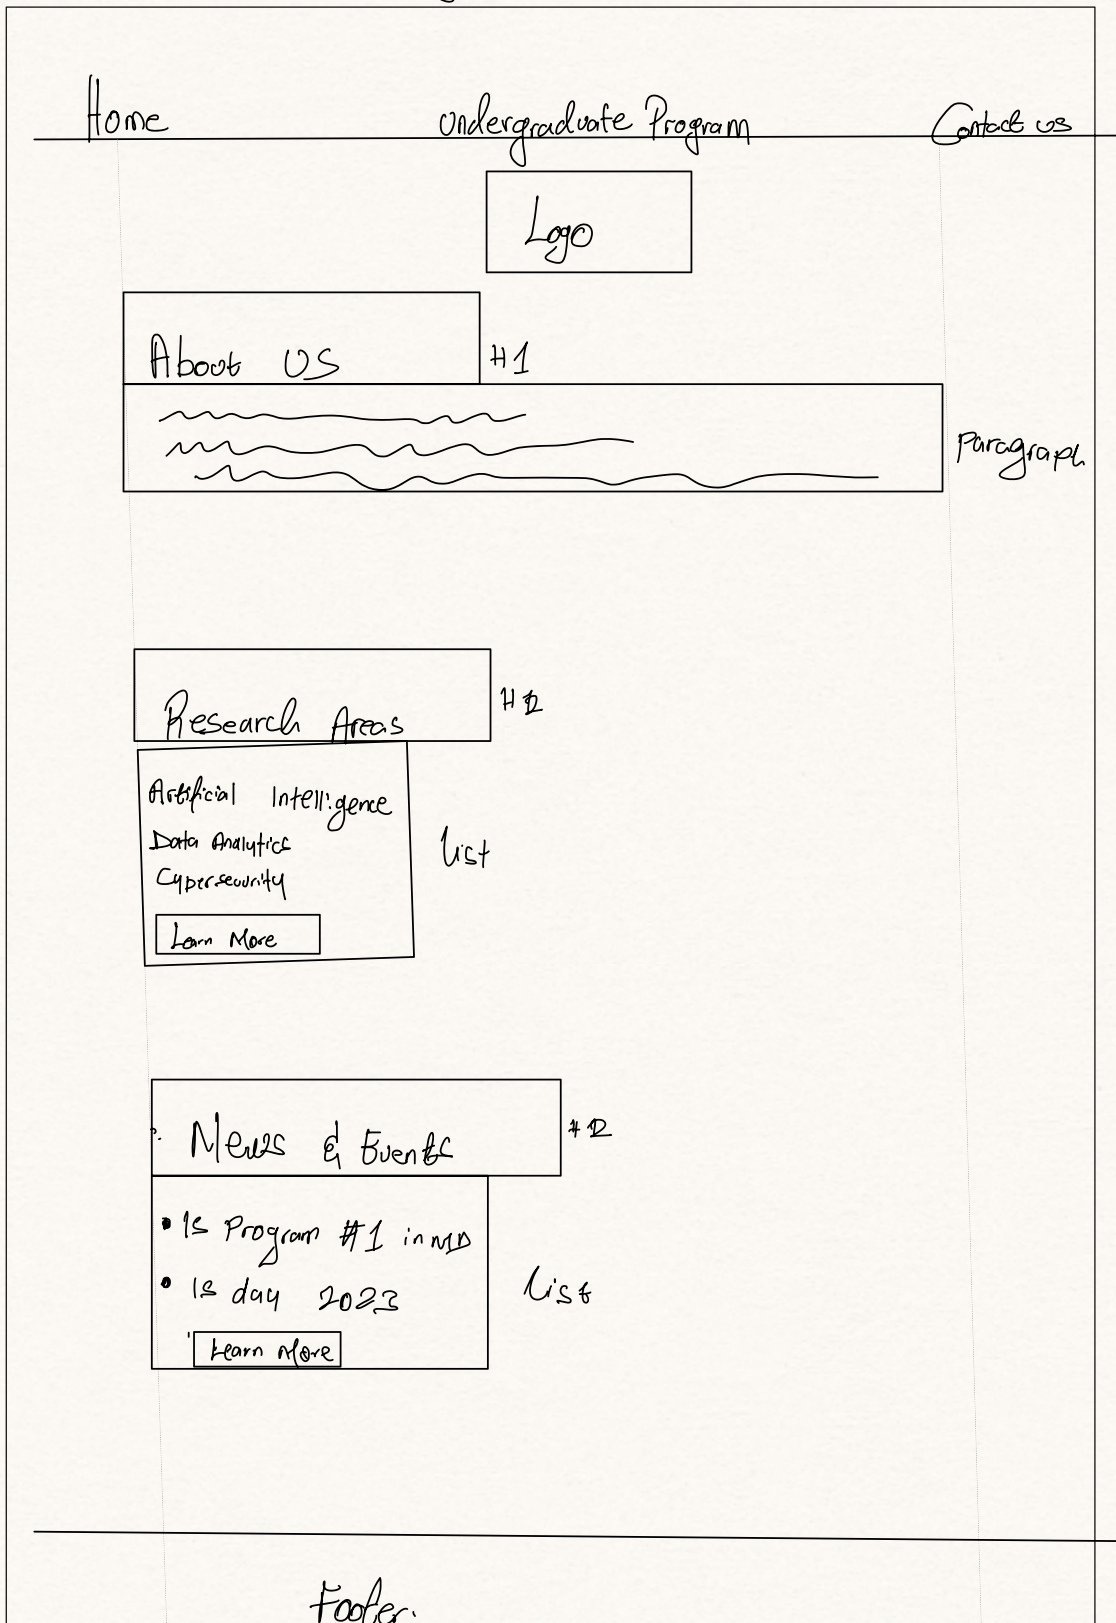 Home Undergraduate Program Contact us
Logo
About US #1
Paragraph
Research Areas
Artificial Intelligence
Data Analytics
List
Cybersecurity
Learn More
News & Events
• IS Program #1 in MD
• IS day 2023 List
Learn More
Footer.